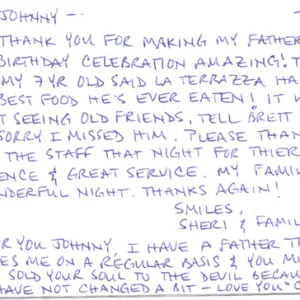 JOHNNY -
THANK YOU FOR MAKING MY FATHER
BIRTHDAY CELEBRATION AMAZING! T
MY 7 YR OLD SAID LA TERRAZZA HA
BEST FOOD HE'S EVER EATEN! IT W
T SEEING OLD FRIENDS, TELL BRETT
SORRY I MISSED HIM. PLEASE THAN
THE STAFF THAT NIGHT FOR THIER
ENCE & GREAT SERVICE. MY FAMIL
NDERFUL NIGHT. THANKS AGAIN!
SMILES,
SHERI & FAMIL
OR YOU JOHNNY, I HAVE A FATHER T
ES ME ON A REGULAR BASIS & YOU MU
SOLD YOUR SOUL TO THE DEVIL BECAU
HAVE NOT CHANGED A BIT - LOVE YOU "C